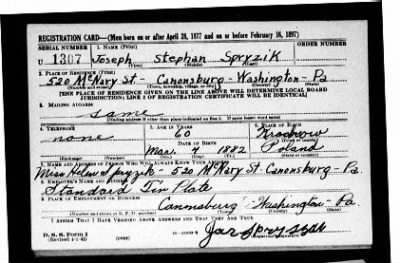 REGISTRATION CARD—(Men born on or after April 28, 1877 and on or before February 16, 1897)
SERIAL NUMBER 1. NAME (Print) ORDER NUMBER
U 1307 Joseph Stephan Spryzik
(First) (Middle) (Last)
2. PLACE OF RESIDENCE (Print)
520 McNary St - Canonsburg - Washington - Pa
(Number and street) (Town, township, village, or city) (County) (State)
[THE PLACE OF RESIDENCE GIVEN ON THE LINE ABOVE WILL DETERMINE LOCAL BOARD
JURISDICTION; LINE 2 OF REGISTRATION CERTIFICATE WILL BE IDENTICAL]
3. MAILING ADDRESS
same
[Mailing address if other than place indicated on line 2. If same insert word same]
4. TELEPHONE 5. AGE IN YEARS 6. PLACE OF BIRTH
none 60 Krachow
DATE OF BIRTH (Town or county)
Mar. 1882 Poland
(Exchange) (Number) (Mo.) (Day) (Yr.) (State or country)
7. NAME AND ADDRESS OF PERSON WHO WILL ALWAYS KNOW YOUR ADDRESS
Miss Helen Spryzik - 520 McNary St - Canonsburg - Pa.
8. EMPLOYER'S NAME AND ADDRESS
Standard Tin Plate
9. PLACE OF EMPLOYMENT OR BUSINESS
Canonsburg - Washington - Pa.
(Number and street or R. F. D. number) (Town) (County) (State)
I AFFIRM THAT I HAVE VERIFIED ABOVE ANSWERS AND THAT THEY ARE TRUE.
D. S. S. FORM 1
(Revised 4-1-42) (over)